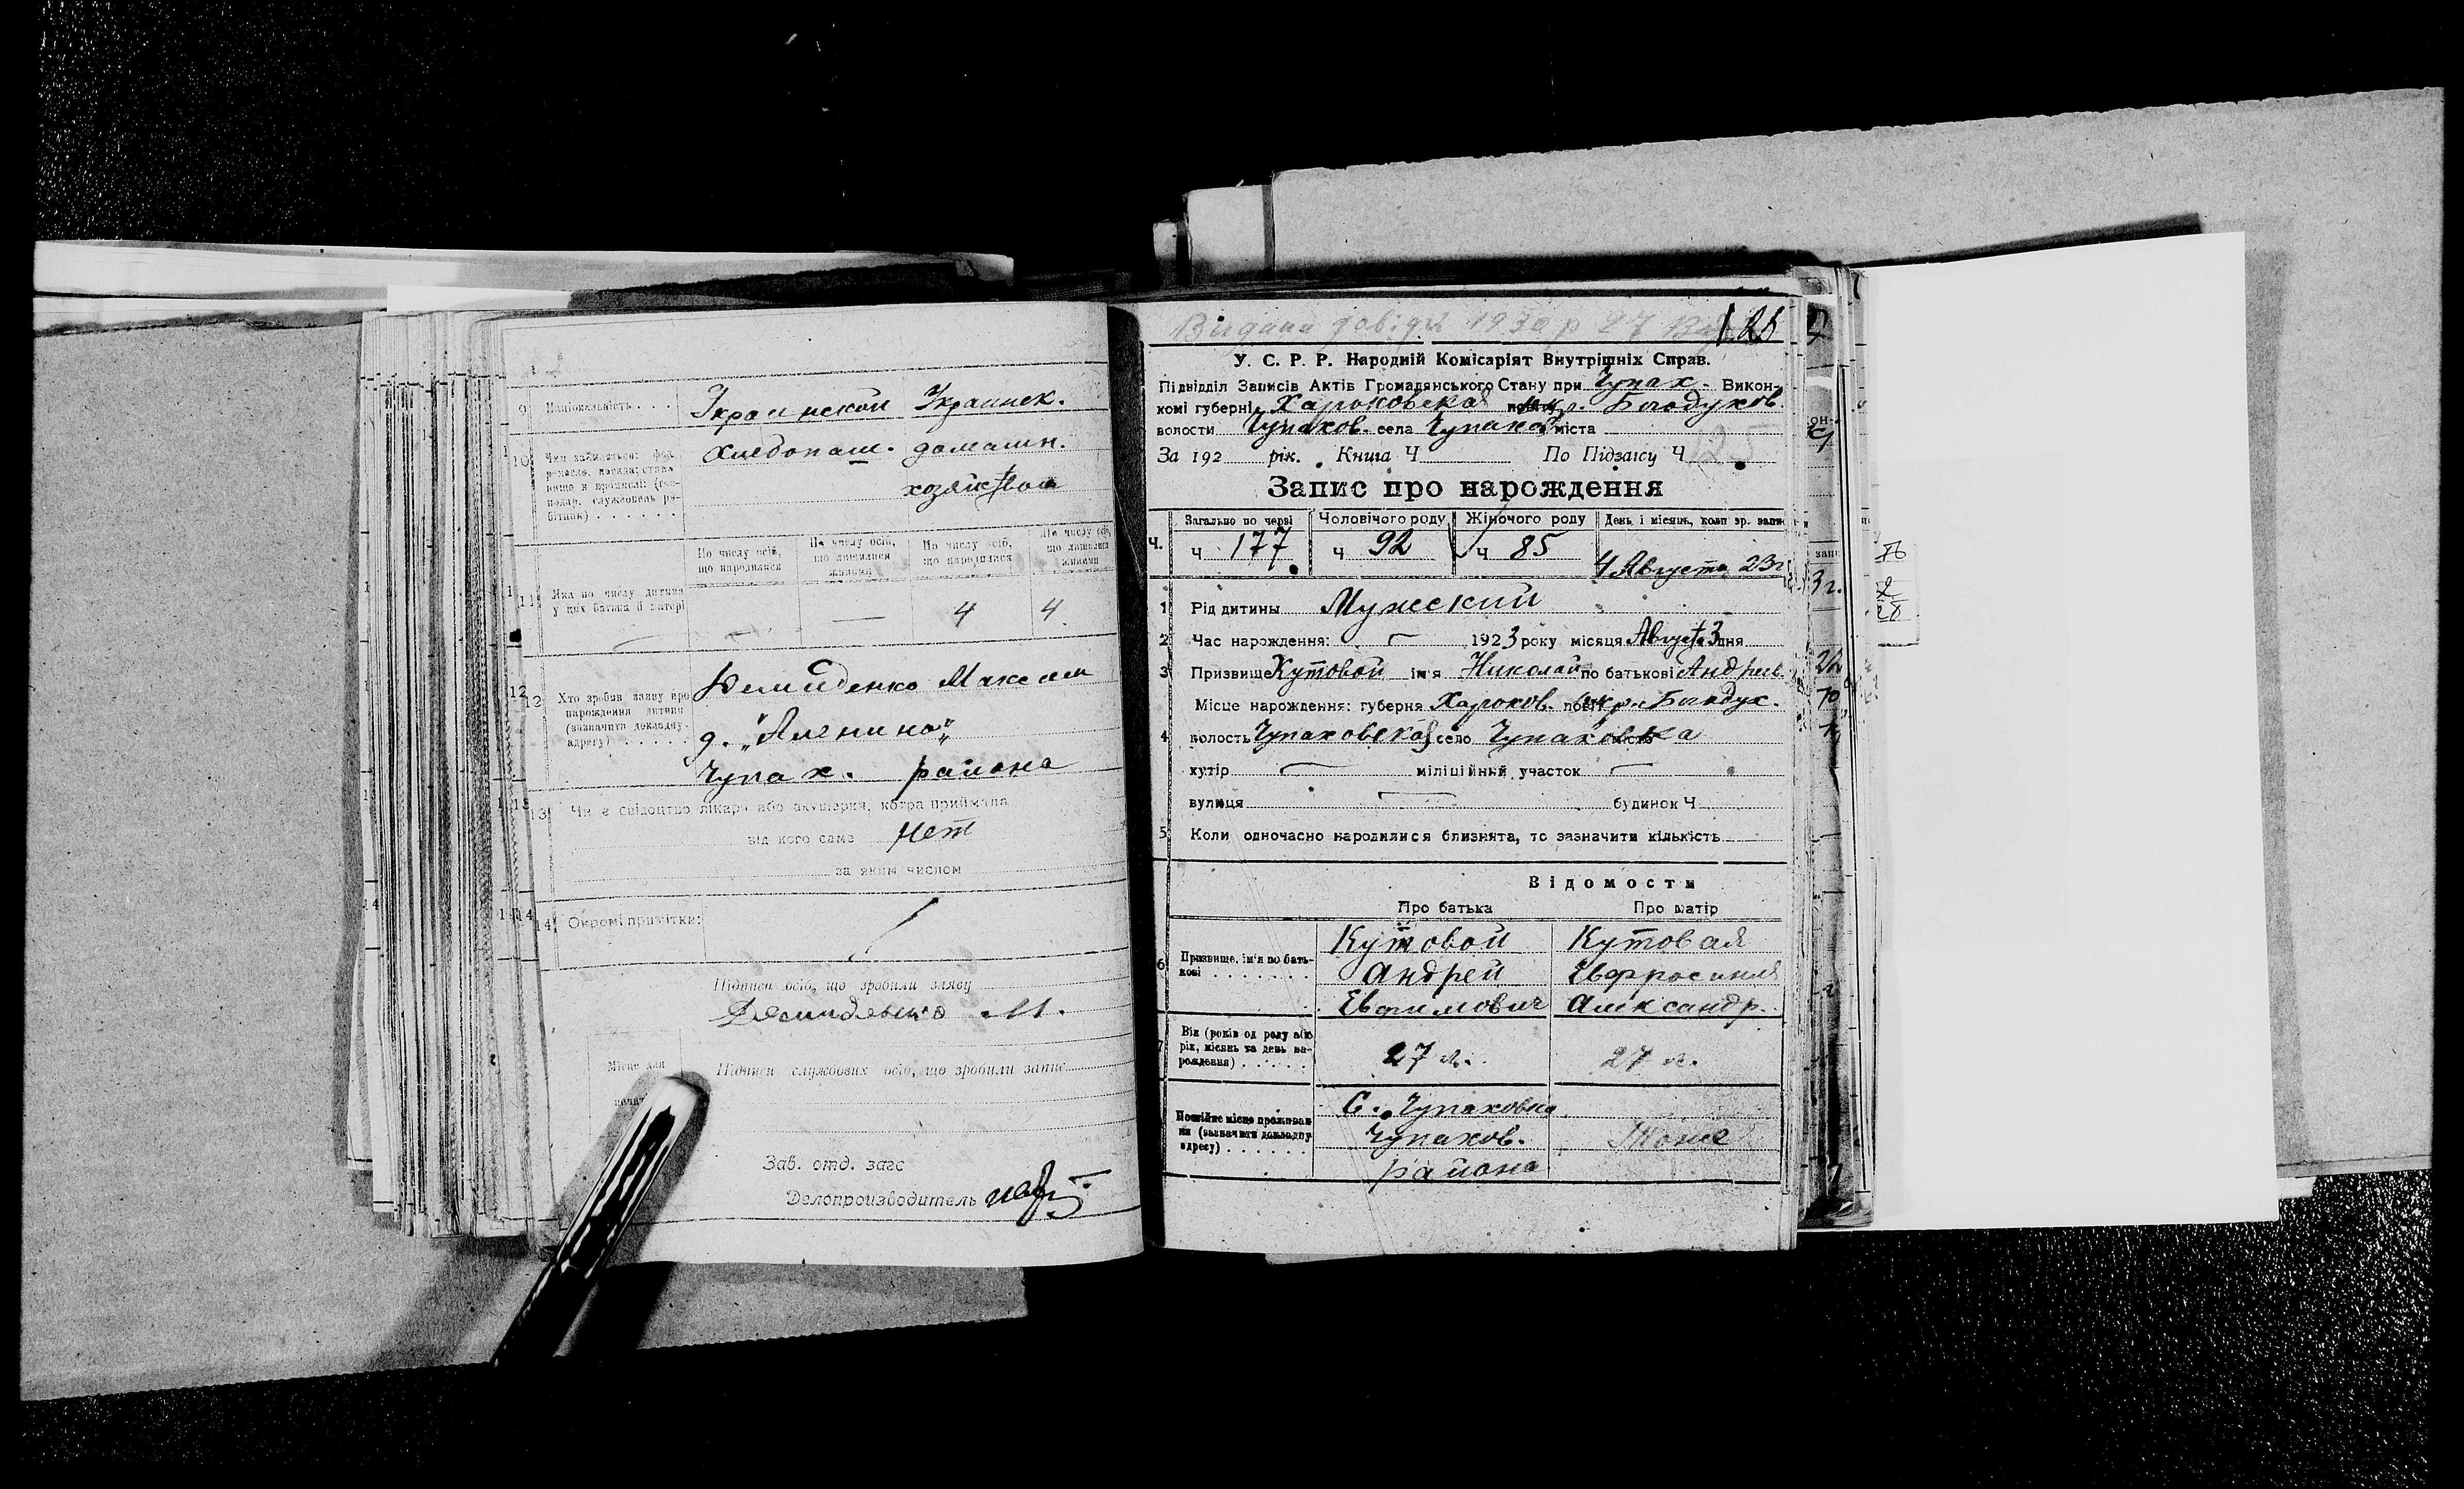 9 Національність . . . Украинской Украинск.
10 Чим займається: фах, хлебопаш. домашн.
хозяйством
По числу осіб, що народилися По числу осіб, що лишилися живими По числу осіб, що народилися По числу осіб, що лишилися живими
11 Яка по числу дитина у цих батька й матері — — 4 4
12 Хто зробив заяву про нарождення дитини (зазначити докладну адресу) . . . . . Демиденко Максим
д. „Ленино"
Чупах. района
13 Чи є свідоцтво лікаря або акушерки, котра приймала
від кого саме нет
за яким числом
14 Окремі примітки:
Підписи осіб, що зробили заяву
Демиденко М.
Місце для
Підписи службових осіб, що зробили запис
Зав. отд. загс
Делопроизводитель
Видана довідка 1930 р 27
У. С. Р. Р. Народній Комісаріят Внутрішніх Справ.
Підвідділ Записів Актів Громадянського Стану при Чупах. Викон-
комі губерні Харьковская окр. Богодухов.
волости Чупахов. села Чупаховка міста
За 192 рік. Книга Ч По Підзапису Ч 125
Запис про нарождення
Ч. Загально по черзі Чоловічого роду Жіночого роду День і місяць, коли зр. запис
Ч 177 Ч 92 Ч 85 4 Августа 23 г
1 Рід дитини Мужский
2 Час нарождення: — 1923 року місяця Августа 3 дня
3 Призвище Кутовой ім'я Николай по батькові Андреев.
4 Місце нарождення: губерня Харьков. окр. Богодух.
волость Чупаховская село Чупаховка
хутір — міліційний участок —
вулиця — будинок Ч
5 Коли одночасно народилися близнята, то зазначити кількість
Відомости
Про батька Про матір
6 Призвище, ім'я по батькові . . . . . . . Кутовой Кутовая
Андрей Евфросиния
Евфимович Александр.
7 Вік (років од роду або рік, місяць та день нарождення) . . . . . 27 л. 27 л.
Постійне місце проживання (зазначити докладну адресу) . . . . . . С. Чупаховка
Чупахов. Тоже
района